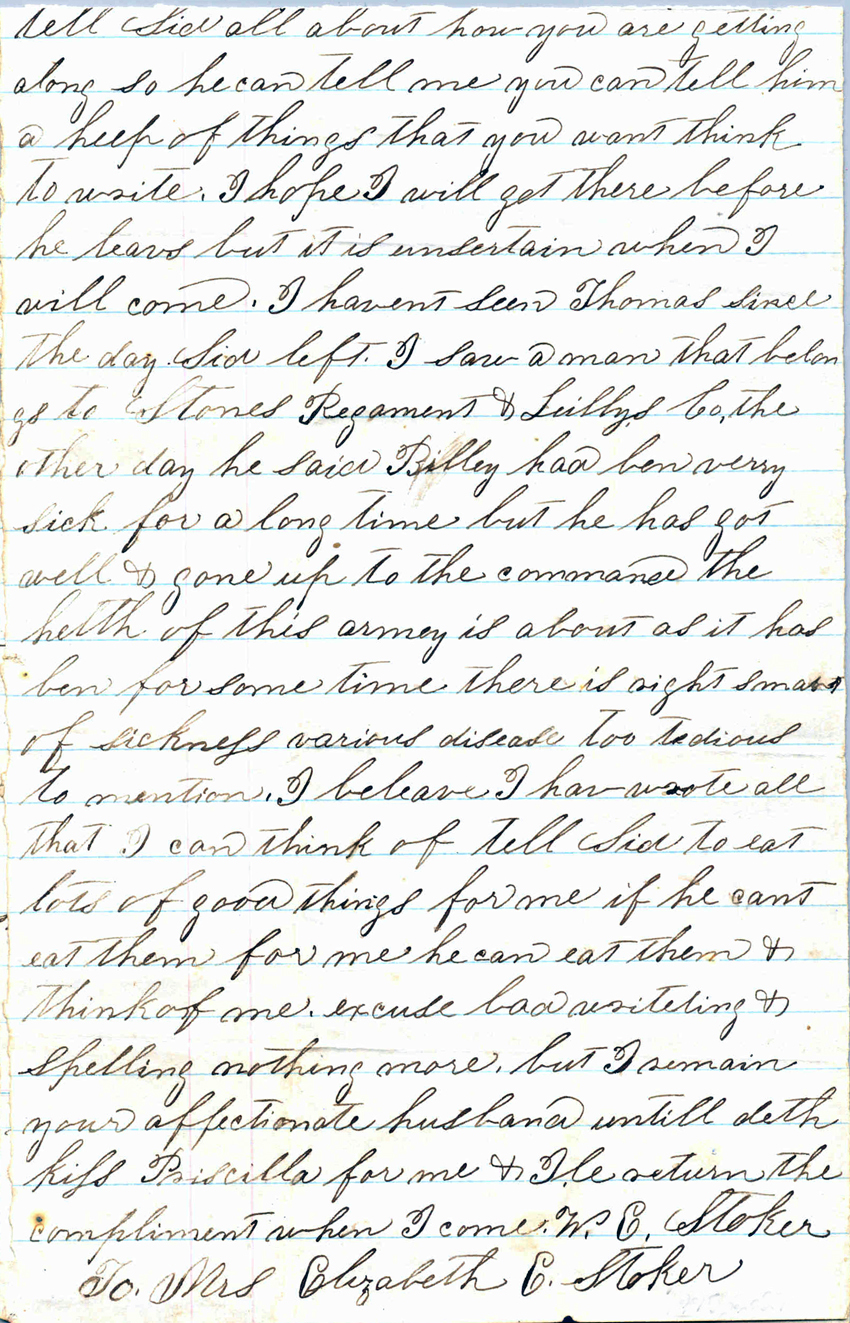 tell Sid all about how you are getting
along so he can tell me you can tell him
a heep of things that you want think
to write. I hope I will get there before
he leavs but it is unsertain when I
will come. I havent seen Thomas since
the day Sid left. I saw a man that belon
gs to Stones Regament & Leillys Co, the
other day he said Billey had ben verry
sick for a long time but he has got
well & gone up to the command the
helth of this armey is about as it has
ben for some time there is right smart
of sickness various disease too tedious
to mention. I beleave I hav wrote all
that I can think of tell Sid to eat
lots of good things for me if he cant
eat them for me he can eat them &
think of me. excuse bad writeting &
spelling nothing more. but I remain
your affectionate husband untill deth
kiss Priscilla for me & Ile return the
compliment when I come. W. E. Stoker
To. Mrs Elizabeth E. Stoker